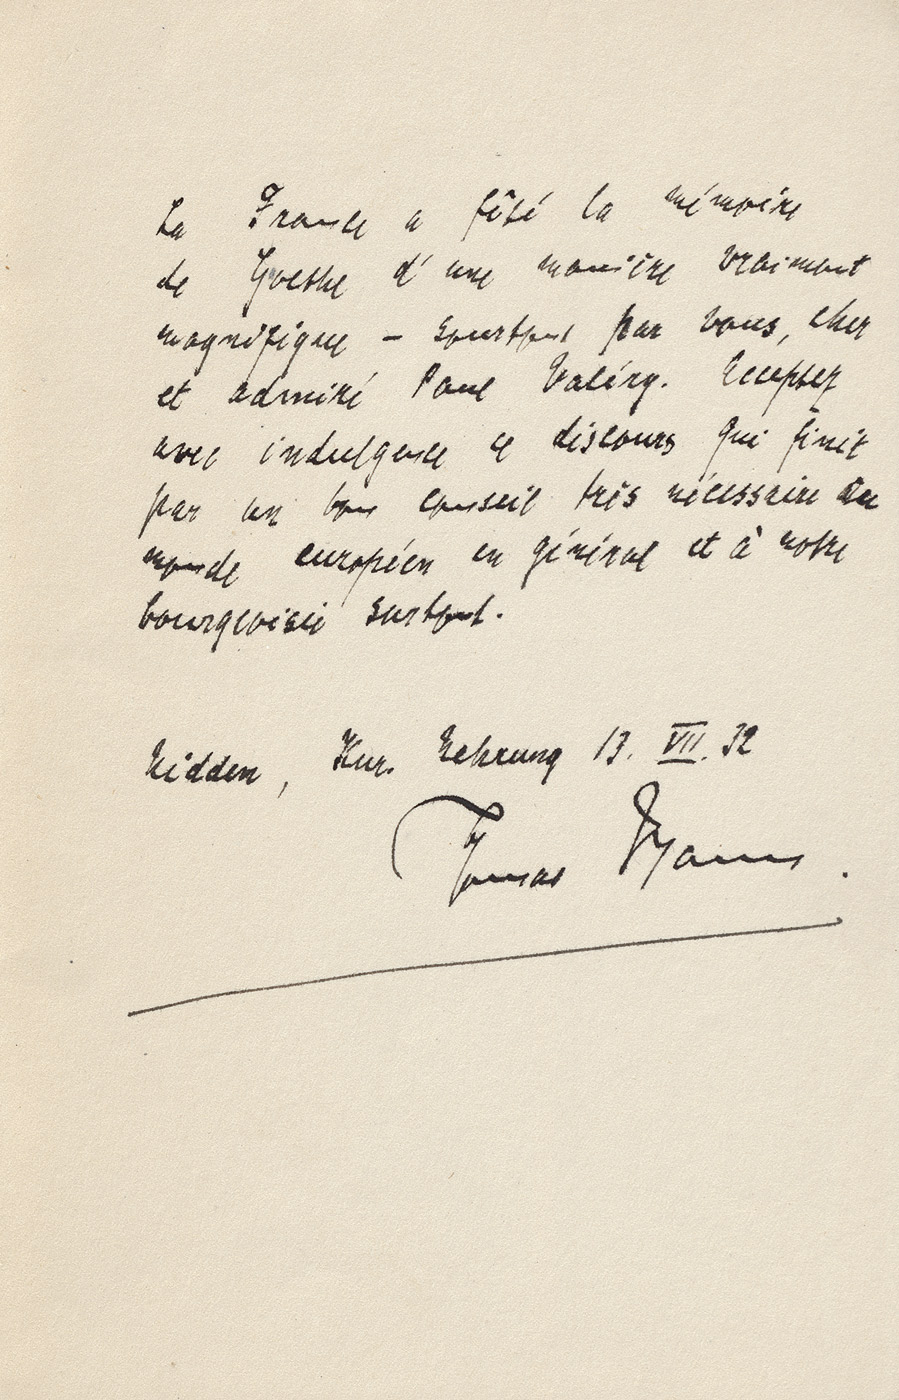 La France a fêté la mémoire
de Goethe d'une manière vraiment
magnifique – sourtout par vous, cher
et admiré Paul Valéry. Acceptez
avec indulgence ce discours qui finit
par un bon conseil très nécessaire au
monde européen en général et à notre
bourgeoisie surtout.
Nidden, Kur. Nehrung 13. VII. 32
Thomas Mann.